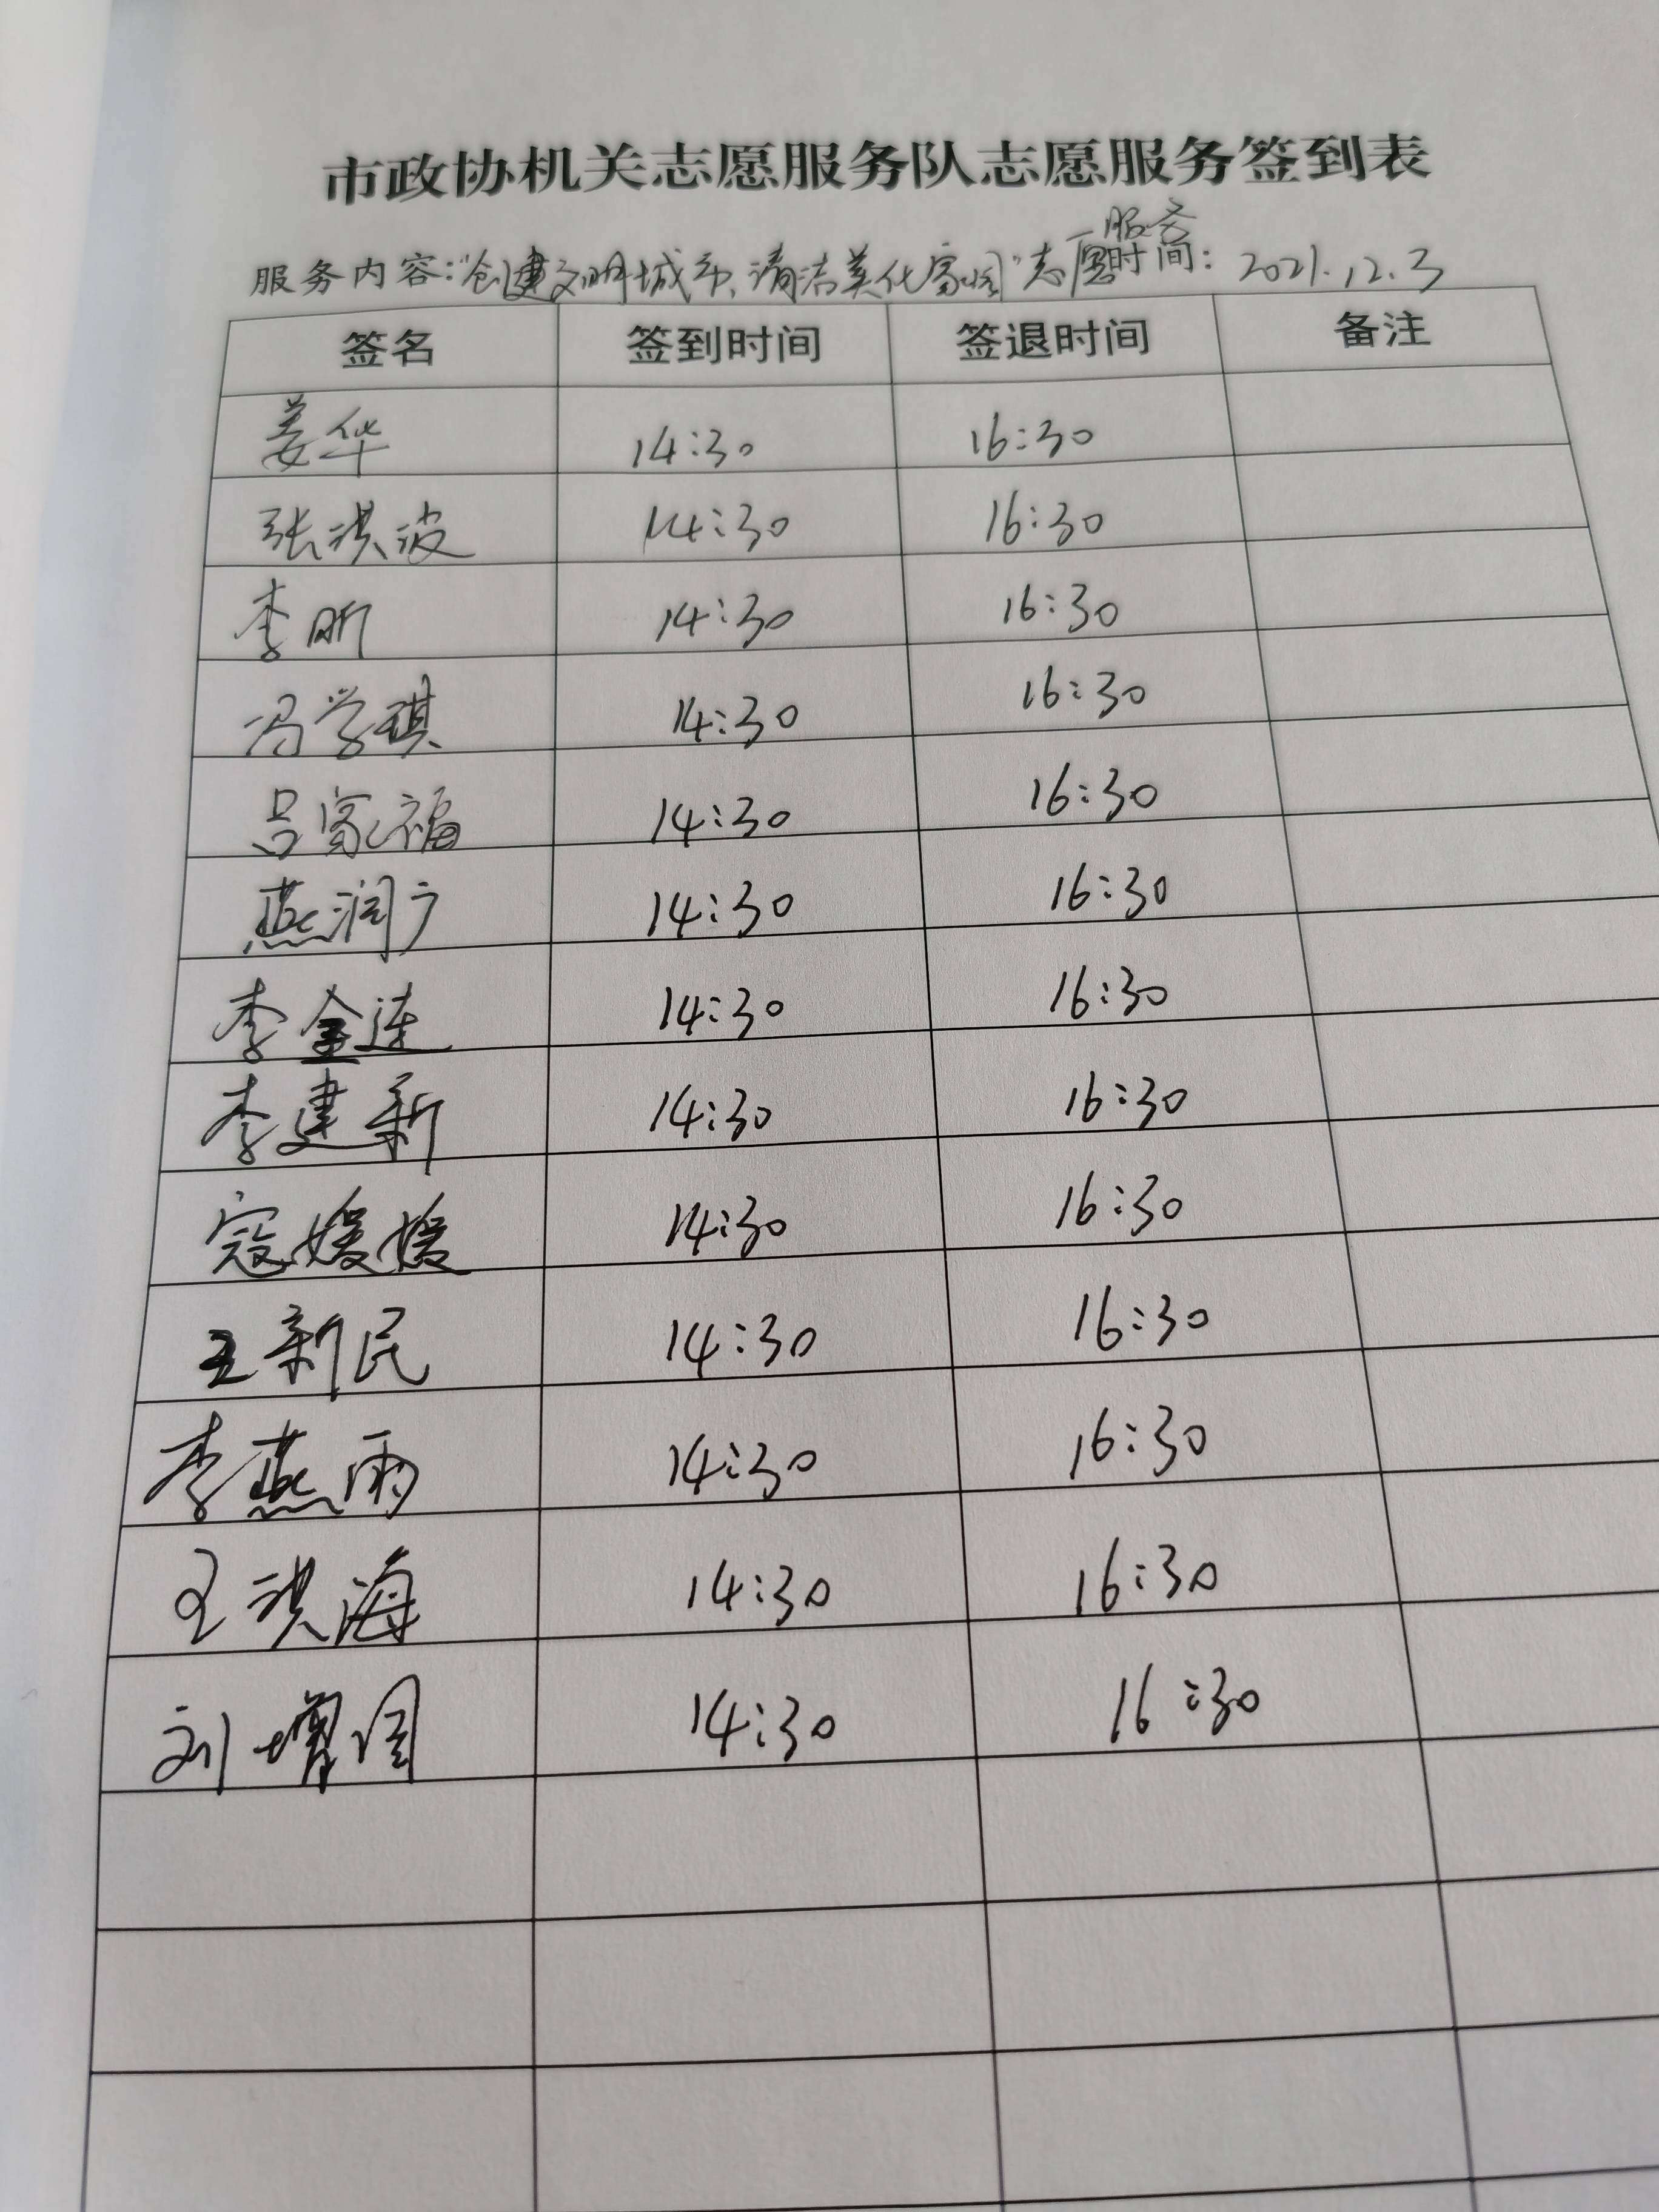 市政协机关志愿服务队志愿服务签到表
服务内容:“创建文明城市、清洁美化家园”志愿服务 时间: 2021.12.3
签名 签到时间 签退时间 备注
姜华 14:30 16:30
张洪波 14:30 16:30
李昕 14:30 16:30
冯学琪 14:30 16:30
吕家福 14:30 16:30
燕润广 14:30 16:30
李金连 14:30 16:30
李建新 14:30 16:30
寇媛媛 14:30 16:30
王新民 14:30 16:30
李燕雨 14:30 16:30
王洪海 14:30 16:30
刘增国 14:30 16:30